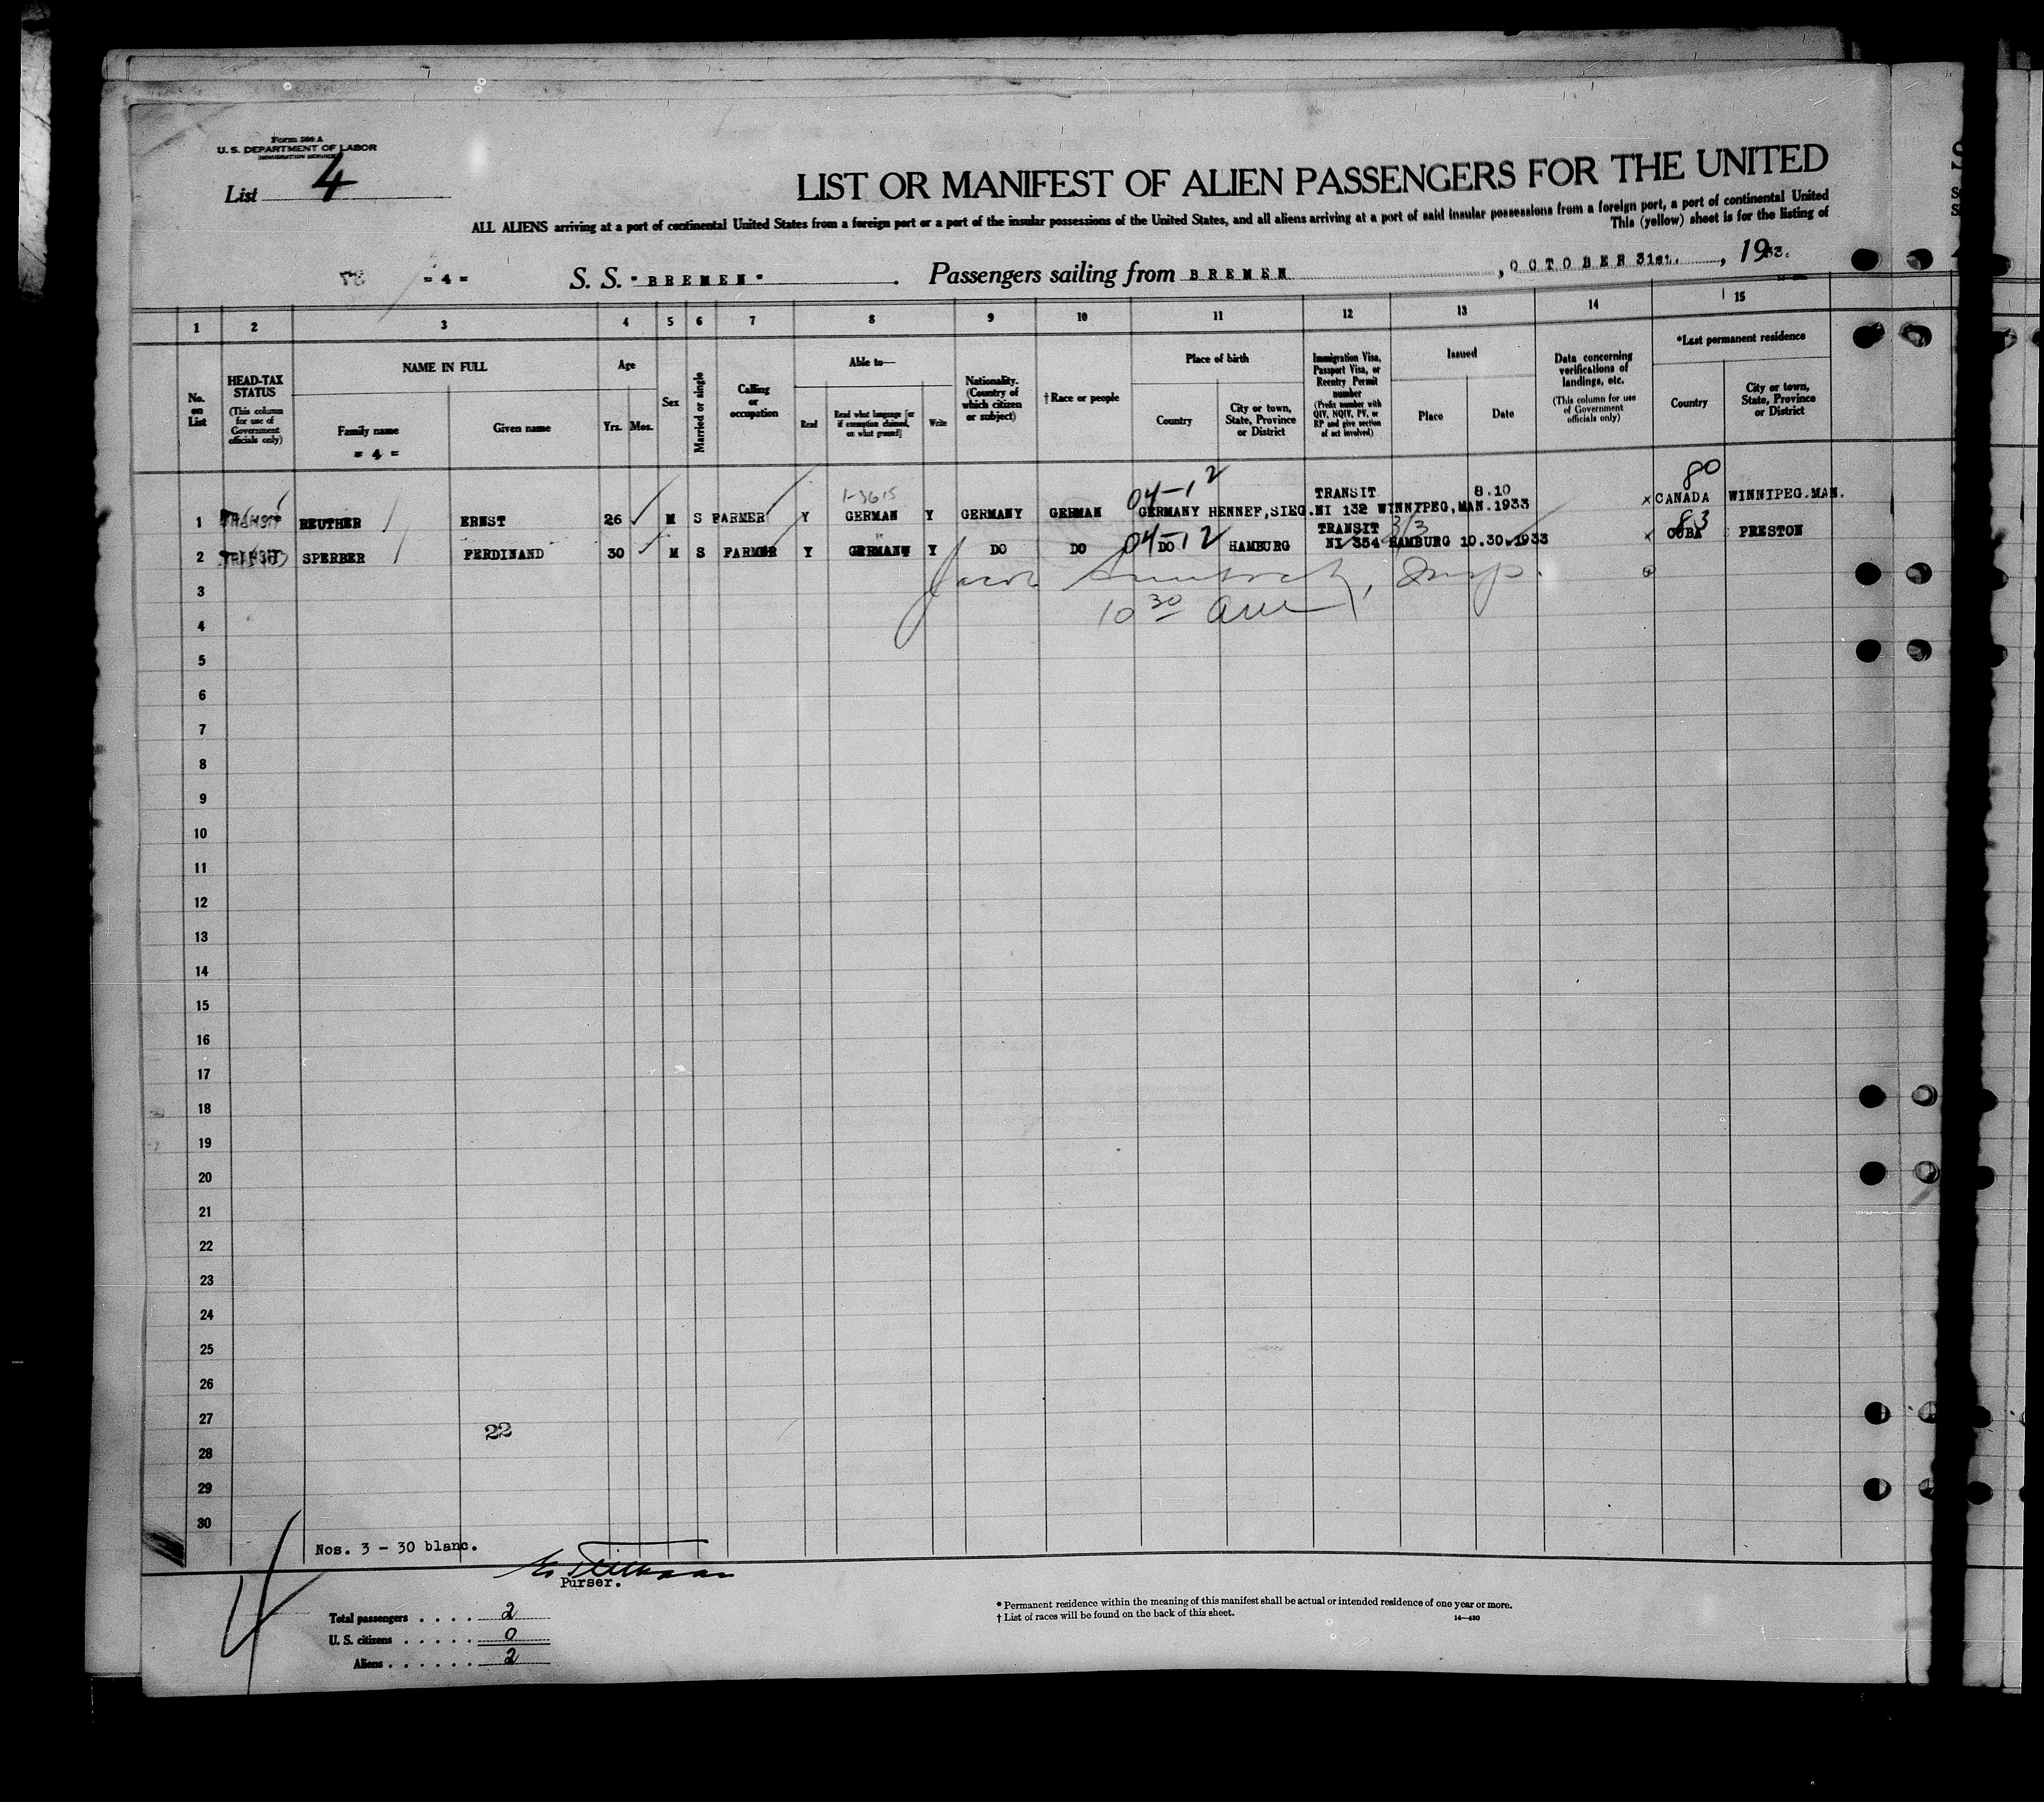 Form 500 A
U. S. DEPARTMENT OF LABOR
IMMIGRATION SERVICE
List 4
LIST OR MANIFEST OF ALIEN PASSENGERS FOR THE UNITED
ALL ALIENS arriving at a port of continental United States from a foreign port or a port of the insular possessions of the United States, and all aliens arriving at a port of said insular possessions from a foreign port, a port of continental United
This (yellow) sheet is for the listing of
= 4 = S. S. "BREMEN". Passengers sailing from BREMEN, OCTOBER 31st., 1933.
1 2 3 4 5 6 7 8 9 10 11 12 13 14 15
No. on List
HEAD-TAX STATUS
(This column for use of Government officials only)
NAME IN FULL
Family name
= 4 =
Given name
Age
Yrs. Mos.
Sex
Married or single
Calling or occupation
Able to—
Read
Read what language [or if exemption claimed, on what ground]
Write
Nationality. (Country of which citizen or subject)
†Race or people
Place of birth
Country
City or town, State, Province or District
Immigration Visa, Passport Visa, or Reentry Permit number
(Prefix number with QIV, NQIV, PV, or RP and give section of act involved)
Issued
Place
Date
Data concerning verifications of landings, etc.
(This column for use of Government officials only)
*Last permanent residence
Country
City or town, State, Province or District
1-3615 04-12 TRANSIT 8.10 80
1 TRANSIT REUTHER ERNST 26 M S FARMER Y GERMAN Y GERMANY GERMAN GERMANY HENNEF,SIEG. NI 132 WINNIPEG,MAN.1933 x CANADA WINNIPEG.MAN.
04-12 TRANSIT 3/3 83
2 TRANSIT SPERBER FERDINAND 30 M S FARMER Y GERMAN Y DO DO DO HAMBURG NI 354 HAMBURG 10.30.1933 x CUBA PRESTON
3 Jacob Insp.
4 10 30 am
5
6
7
8
9
10
11
12
13
14
15
16
17
18
19
20
21
22
23
24
25
26
27 22
28
29
30
Nos. 3 - 30 blanc.
Purser.
Total passengers . . . . 2
U. S. citizens . . . . . 0
Aliens . . . . . . 2
* Permanent residence within the meaning of this manifest shall be actual or intended residence of one year or more.
† List of races will be found on the back of this sheet.
14—430